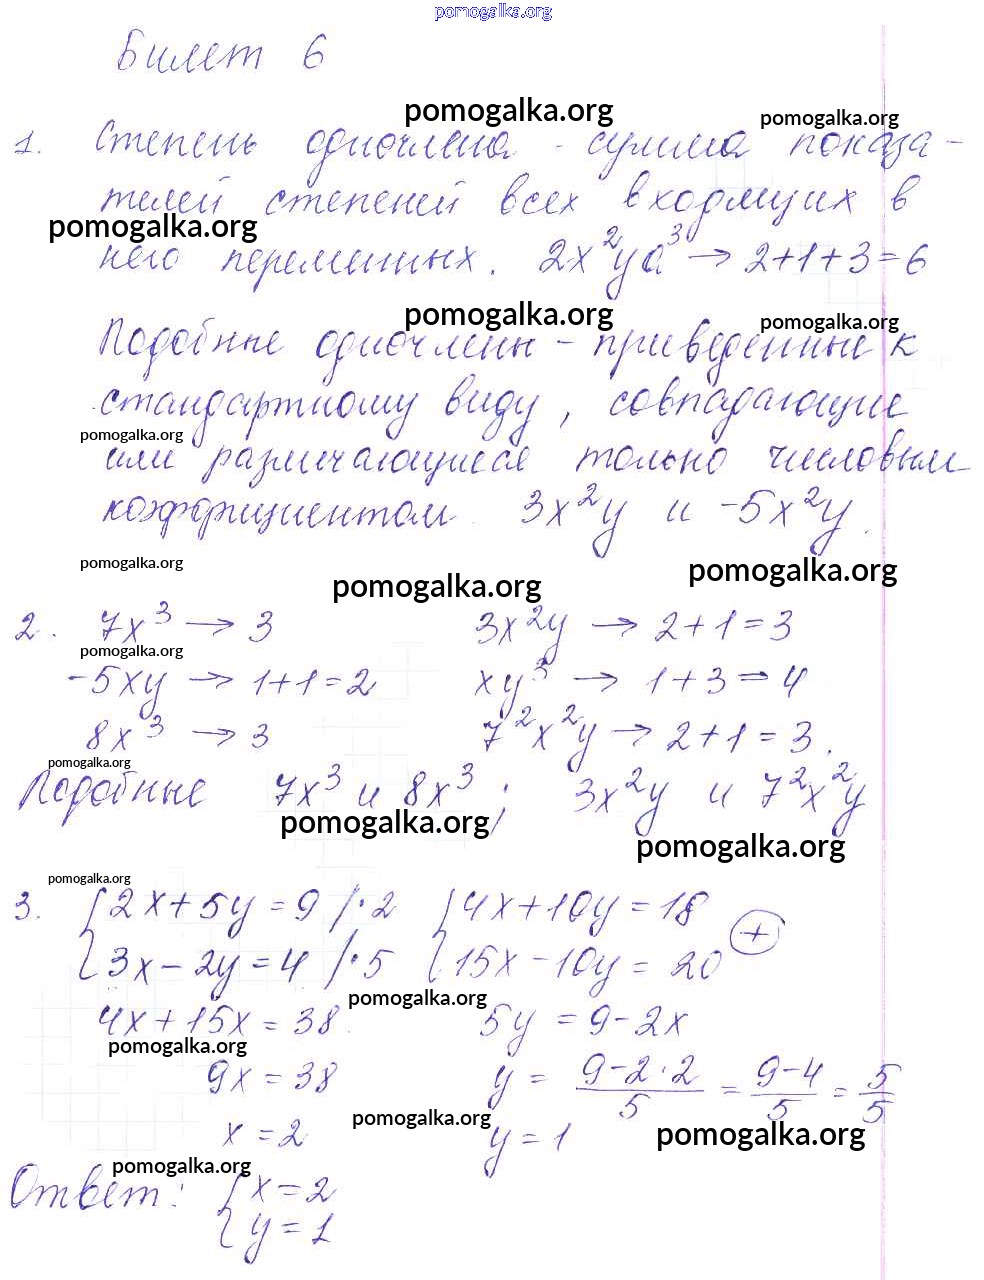 pomogalka.org
Билет 6
pomogalka.org pomogalka.org
1. Степень одночлена - сумма показа-
телей степеней всех входящих в
pomogalka.org
него переменных. 2x²ya³ → 2+1+3=6
pomogalka.org pomogalka.org
Подобные одночлены - приведенные к
стандартному виду, совпадающие
pomogalka.org
или различающиеся только числовым
коэффициентом. 3x²y и -5x²y.
pomogalka.org pomogalka.org pomogalka.org
2. 7x³ → 3 3x²y → 2+1=3
pomogalka.org
-5xy → 1+1=2 xy³ → 1+3=4
8x³ → 3 7²x²y → 2+1=3.
pomogalka.org
Подобные 7x³ и 8x³; 3x²y и 7²x²y
pomogalka.org pomogalka.org
pomogalka.org
3. {2x+5y=9 /·2 {4x+10y=18
{3x-2y=4 /·5 {15x-10y=20 (+)
pomogalka.org
4x+15x=38 5y=9-2x
pomogalka.org
9x=38 y= (9-2·2)/5 = (9-4)/5 = 5/5
pomogalka.org pomogalka.org
x=2 y=1
pomogalka.org
Ответ: {x=2
{y=1